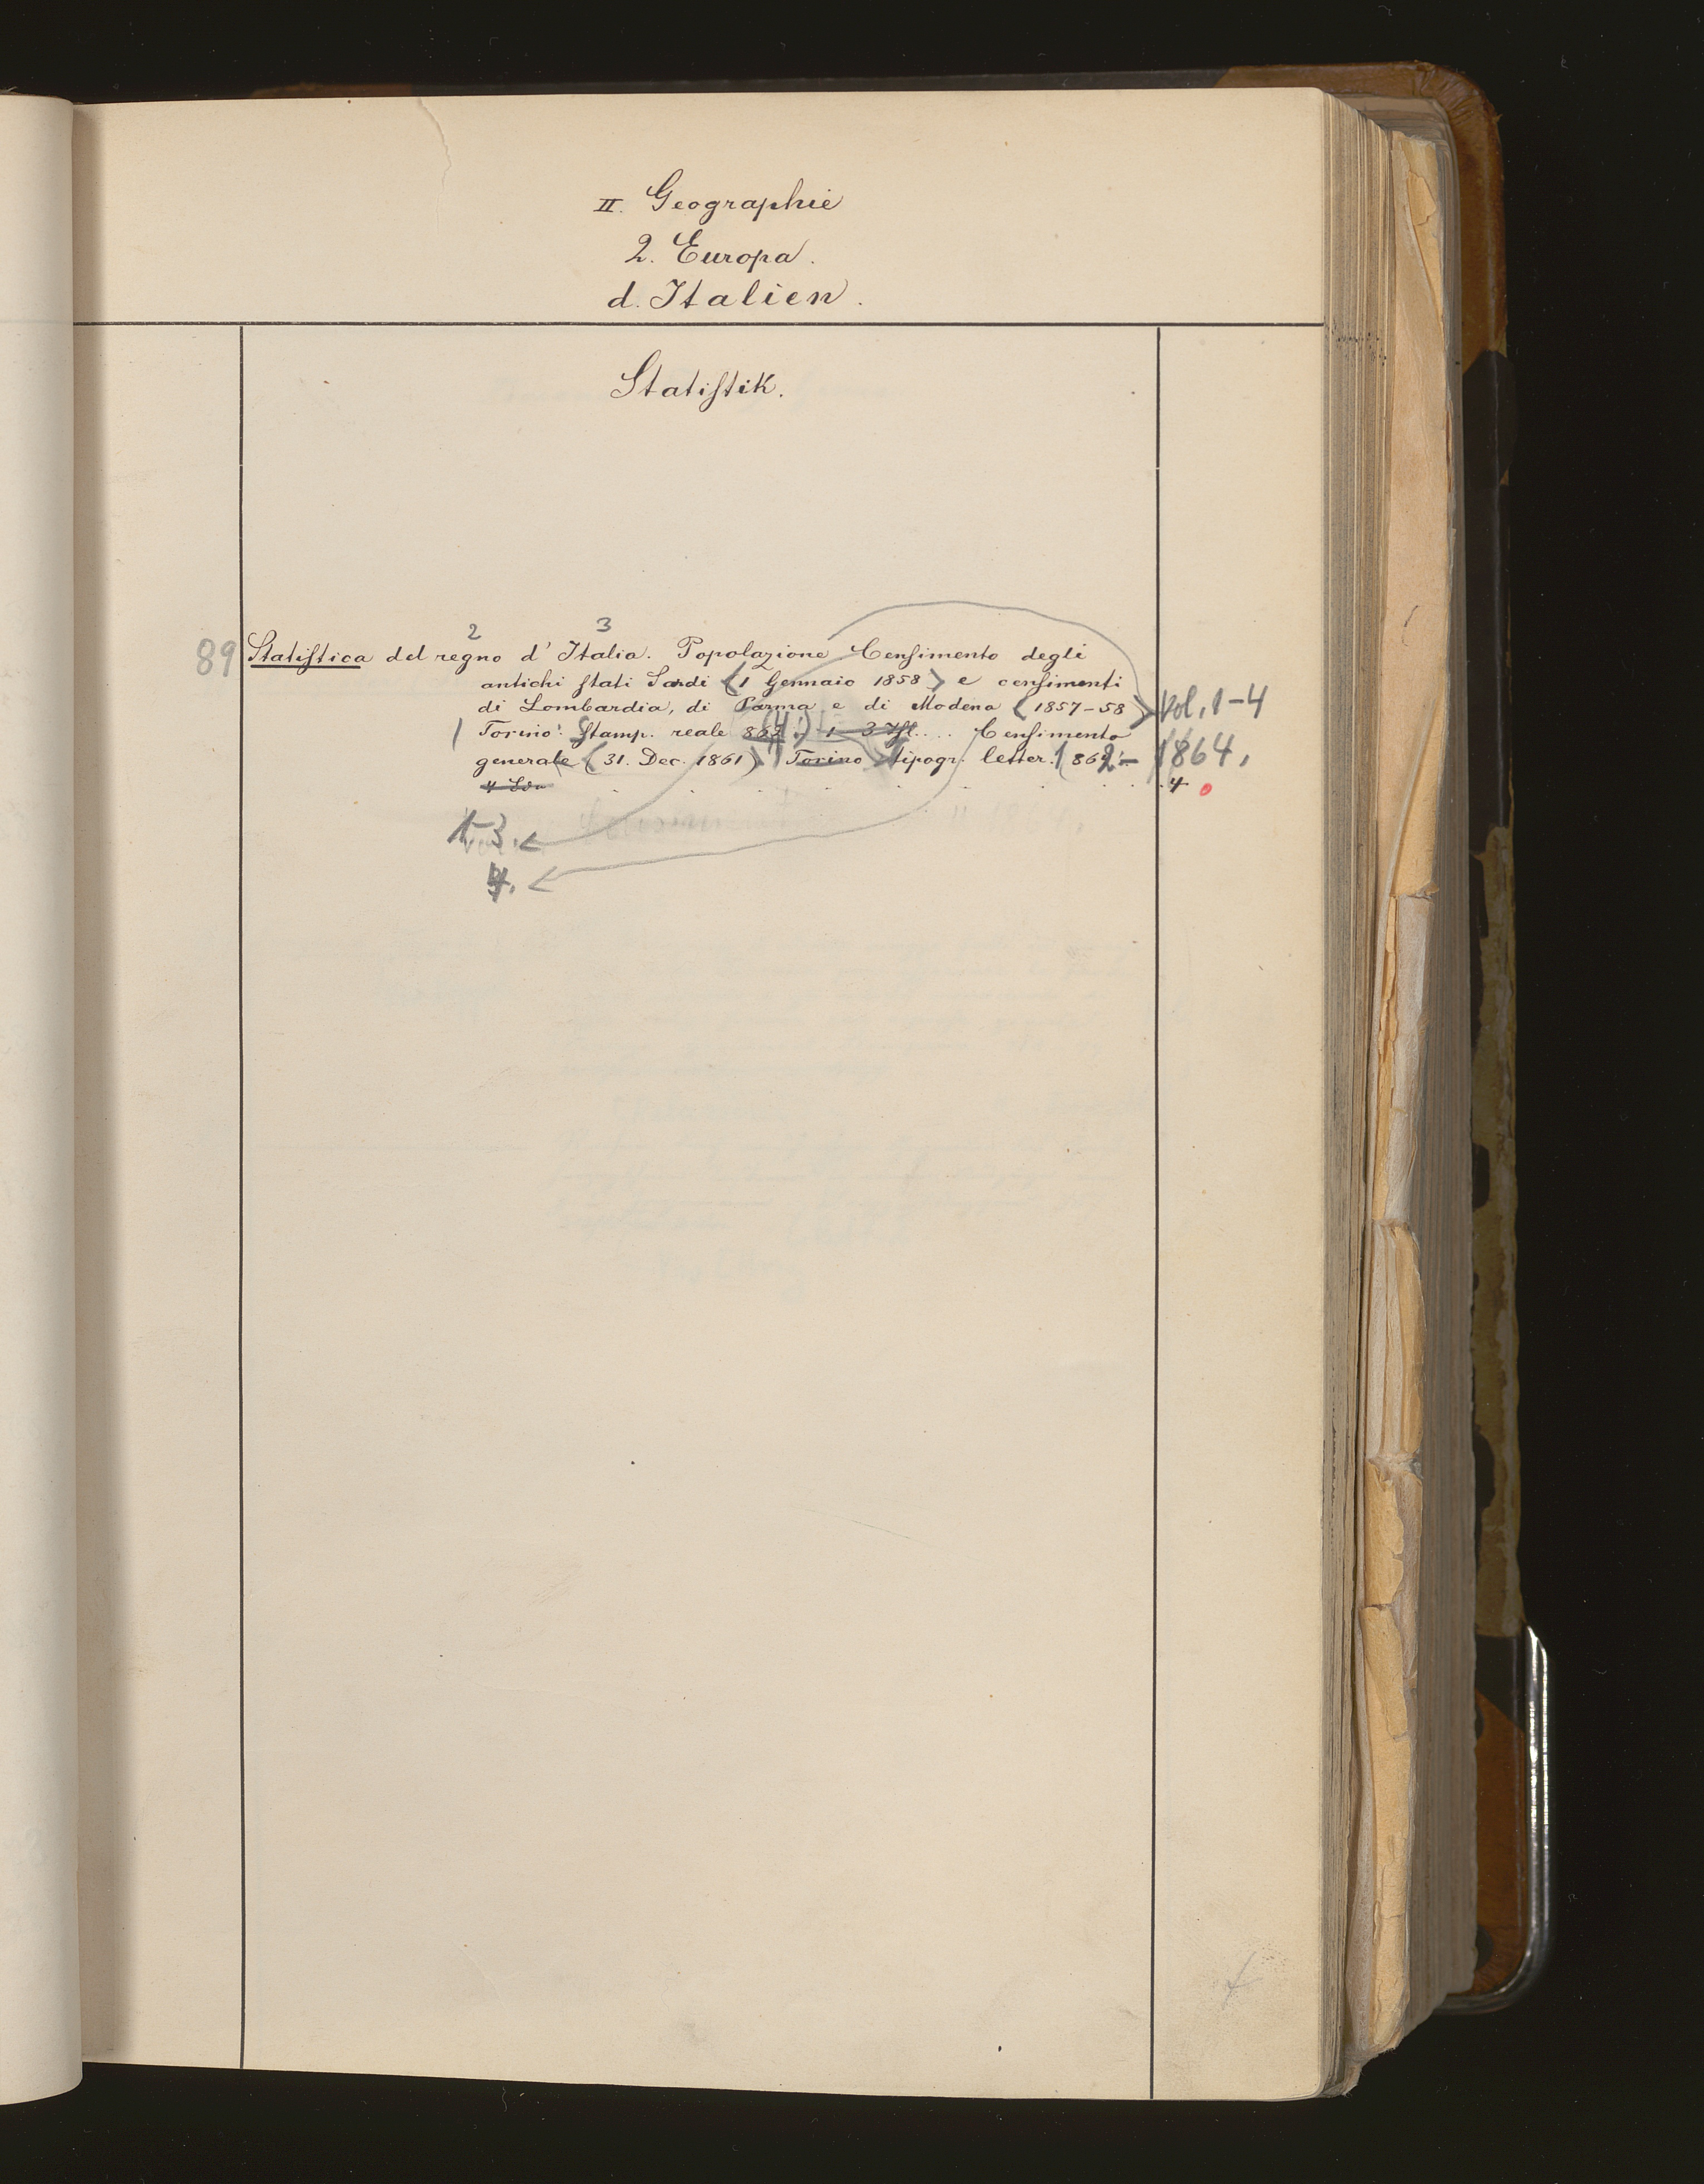 II. Geographie
2. Europa.
d. Italien.
Statistik.
2 3
89 Statistica del regno d'Italia. Popolazione Censimento degli
antichi stati Sardi (1 Gennaio 1858) e censimenti
di Lombardia, di Parma e di Modena (1857-58) Vol. 1-4
Torino: Stamp. reale 862 1-3 .... Censimento
generale (31. Dec. 1861) Torino tipogr. letter. 1862- 1864.
4
1-3.
4.